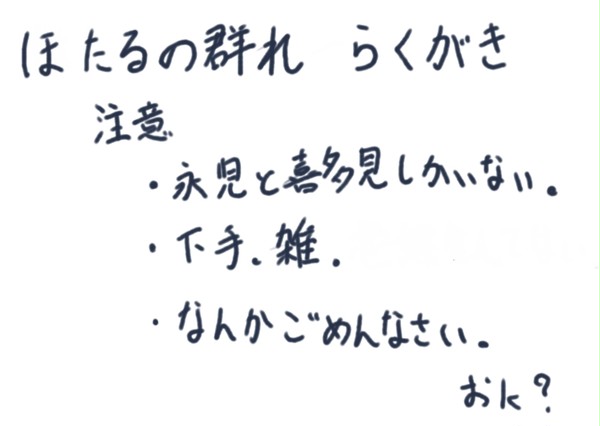 ほたるの群れ らくがき
注意
・永児と喜多見しかいない。
・下手。雑。
・なんかごめんなさい。
おk?